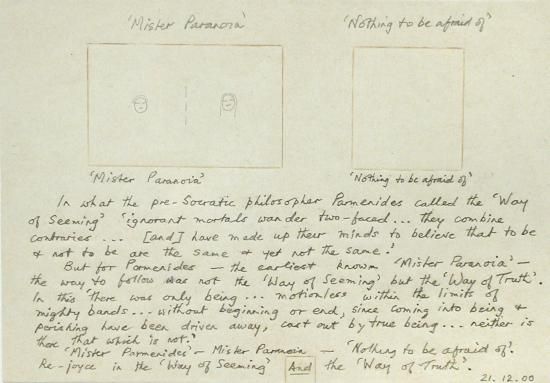 'Mister Paranoia' 'Nothing to be afraid of'
'Mister Paranoia' 'Nothing to be afraid of'
In what the pre-Socratic philosopher Parmenides called the 'Way
of Seeming' 'ignorant mortals wander two-faced... they combine
contraries ... [and] have made up their minds to believe that to be
& not to be are the same & yet not the same.'
But for Parmenides – the earliest known 'Mister Paranoia' –
the way to follow was not the 'Way of Seeming' but the 'Way of Truth'.
In this 'there was only being... motionless within the limits of
mighty bands... without beginning or end, since coming into being &
perishing have been driven away, cast out by true being... neither is
there that which is not.'
'Mister Parmenides' – Mister Paranoia – 'Nothing to be afraid of'.
Re-joyce in the 'Way of Seeming' And the 'Way of Truth'.
21.12.00